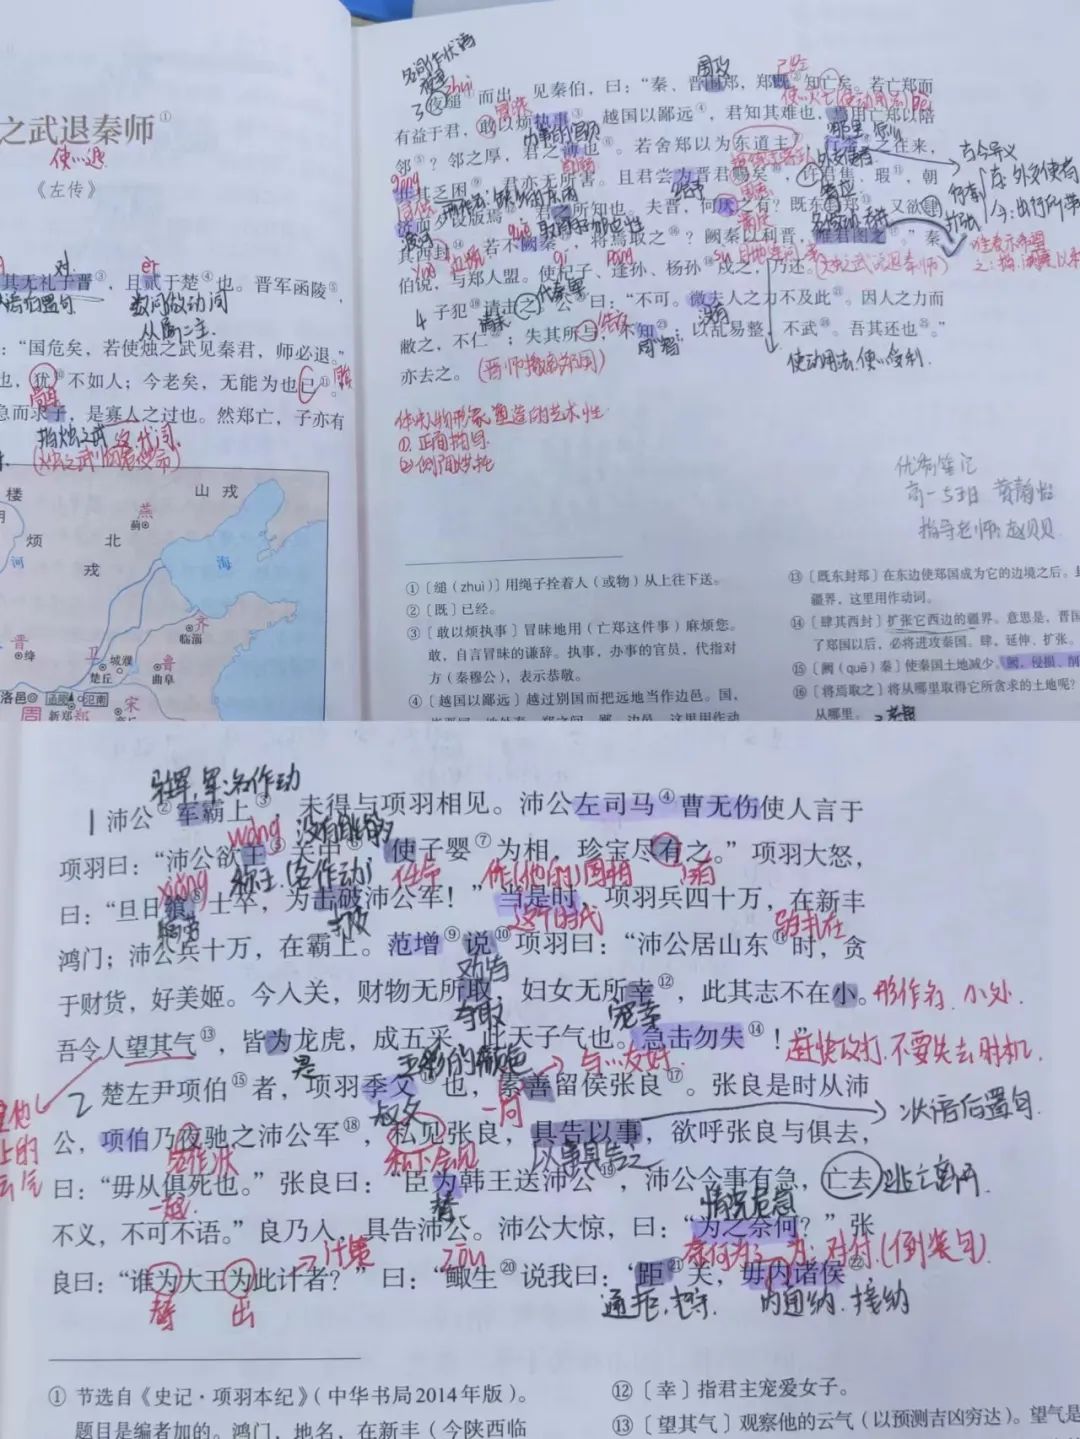 之武退秦师①
使……退
《左传》
其无礼于晋③，且贰于楚④也。晋军函陵⑤，
状语后置句
数词做动词
从属二主
：“国危矣，若使烛之武见秦君，师必退。”
也，犹⑩不如人；今老矣，无能为也已⑪。
急而求子，是寡人之过也。然郑亡，子亦有
指烛之武
楼
山戎
燕
蓟
烦
北
河
戎
海
齐
临淄
晋
绛
卫
城濮
楚丘
鲁
曲阜
洛邑
函陵
氾南
宋
周
新郑
郑
名词作状语
3 夜缒①而出，见秦伯，曰：“秦、晋围郑，郑既②知亡矣。若亡郑而
zhuì
围攻
已经
有益于君，敢以烦执事③。越国以鄙远④，君知其难也，焉用亡郑以陪
冒昧
办事的官员
邻⑤？邻之厚，君之薄也⑥。若舍郑以为东道主⑦，行李⑧之往来，
古今异义
古：外交使者
共其乏困⑨，君亦无所害。且君尝为晋君赐矣⑩，许君焦、瑕⑪，朝
gōng
济而夕设版焉⑫，君之所知也。夫晋，何厌⑬之有？既东封郑⑬，又欲肆
其西封⑭，若不阙秦⑮，将焉取之⑯？阙秦以利晋，唯君图之⑰。”秦
quē
(烛之武说退秦师)
伯说，与郑人盟。使杞子、逢孙、杨孙⑱戍之，乃还。
yuè
qǐ
páng
4 子犯⑲请击之。公⑳曰：“不可。微夫人之力不及此㉑。因人之力而
代秦军
没有
敝之，不仁㉒；失其所与，不知㉓；以乱易整，不武㉔。吾其还也㉕。”
同“智”
使动用法，使……受利
亦去之。
(晋师撤离郑国)
体味人物形象塑造的艺术性
①.正面描写
②侧面烘托
优秀笔记
指导老师：赵贝贝
①〔缒（zhuì）〕用绳子拴着人（或物）从上往下送。
②〔既〕已经。
③〔敢以烦执事〕冒昧地用（亡郑这件事）麻烦您。
敢，自言冒昧的谦辞。执事，办事的官员，代指对
方（秦穆公），表示恭敬。
④〔越国以鄙远〕越过别国而把远地当作边邑。国，
⑬〔既东封郑〕在东边使郑国成为它的边境之后。
疆界，这里用作动词。
⑭〔肆其西封〕扩张它西边的疆界。意思是，晋国
了郑国以后，必将进攻秦国。肆，延伸、扩张。
⑮〔阙（quē）秦〕使秦国土地减少。阙，侵损、削
⑯〔将焉取之〕将从哪里取得它所贪求的土地呢？
从哪里。
驻军，军：名作动
1 沛公②军霸上③，未得与项羽相见。沛公左司马④曹无伤使人言于
wàng
项羽曰：“沛公欲王⑤关中⑥，使子婴⑦为相，珍宝尽有之。”项羽大怒，
称王（名作动）
任命
作（他的）国相
xiǎng
曰：“旦日飨⑧士卒，为击破沛公军！”当是时，项羽兵四十万，在新丰
犒劳
打败
驻扎在
鸿门；沛公兵十万，在霸上。范增⑨说⑩项羽曰：“沛公居山东⑪时，贪
劝告
于财货，好美姬。今入关，财物无所取，妇女无所幸⑫，此其志不在小。
形作名，小处.
夺取
宠幸
吾令人望其气⑬，皆为龙虎，成五采，此天子气也。急击勿失⑭！”
赶快攻打，不要失去时机.
是
五彩的颜色
与……友好
2 楚左尹项伯⑮者，项羽季父⑯也，素善留侯张良⑰。张良是时从沛
叔父
状语后置句.
公，项伯乃夜驰之沛公军⑱，私见张良，具告以事，欲呼张良与俱去，
名作状
私下会见
以事具告之
曰：“毋从俱死也。”张良曰：“臣为韩王送沛公⑲，沛公今事有急，亡去
逃亡离开.
一起
替
情况危急
不义，不可不语。”良乃入，具告沛公。沛公大惊，曰：“为之奈何？”张
计策
zōu
奈何为之
为：对付.(倒装句)
良曰：“谁为大王为此计者？”曰：“鲰生⑳说我曰：‘距㉑关，毋内诸侯㉒
替
出
通拒，把守.
内通纳，接纳
① 节选自《史记·项羽本纪》（中华书局2014年版）。
题目是编者加的。鸿门，地名，在新丰（今陕西临
⑫〔幸〕指君主宠爱女子。
⑬〔望其气〕观察他的云气（以预测吉凶穷达）。望气是